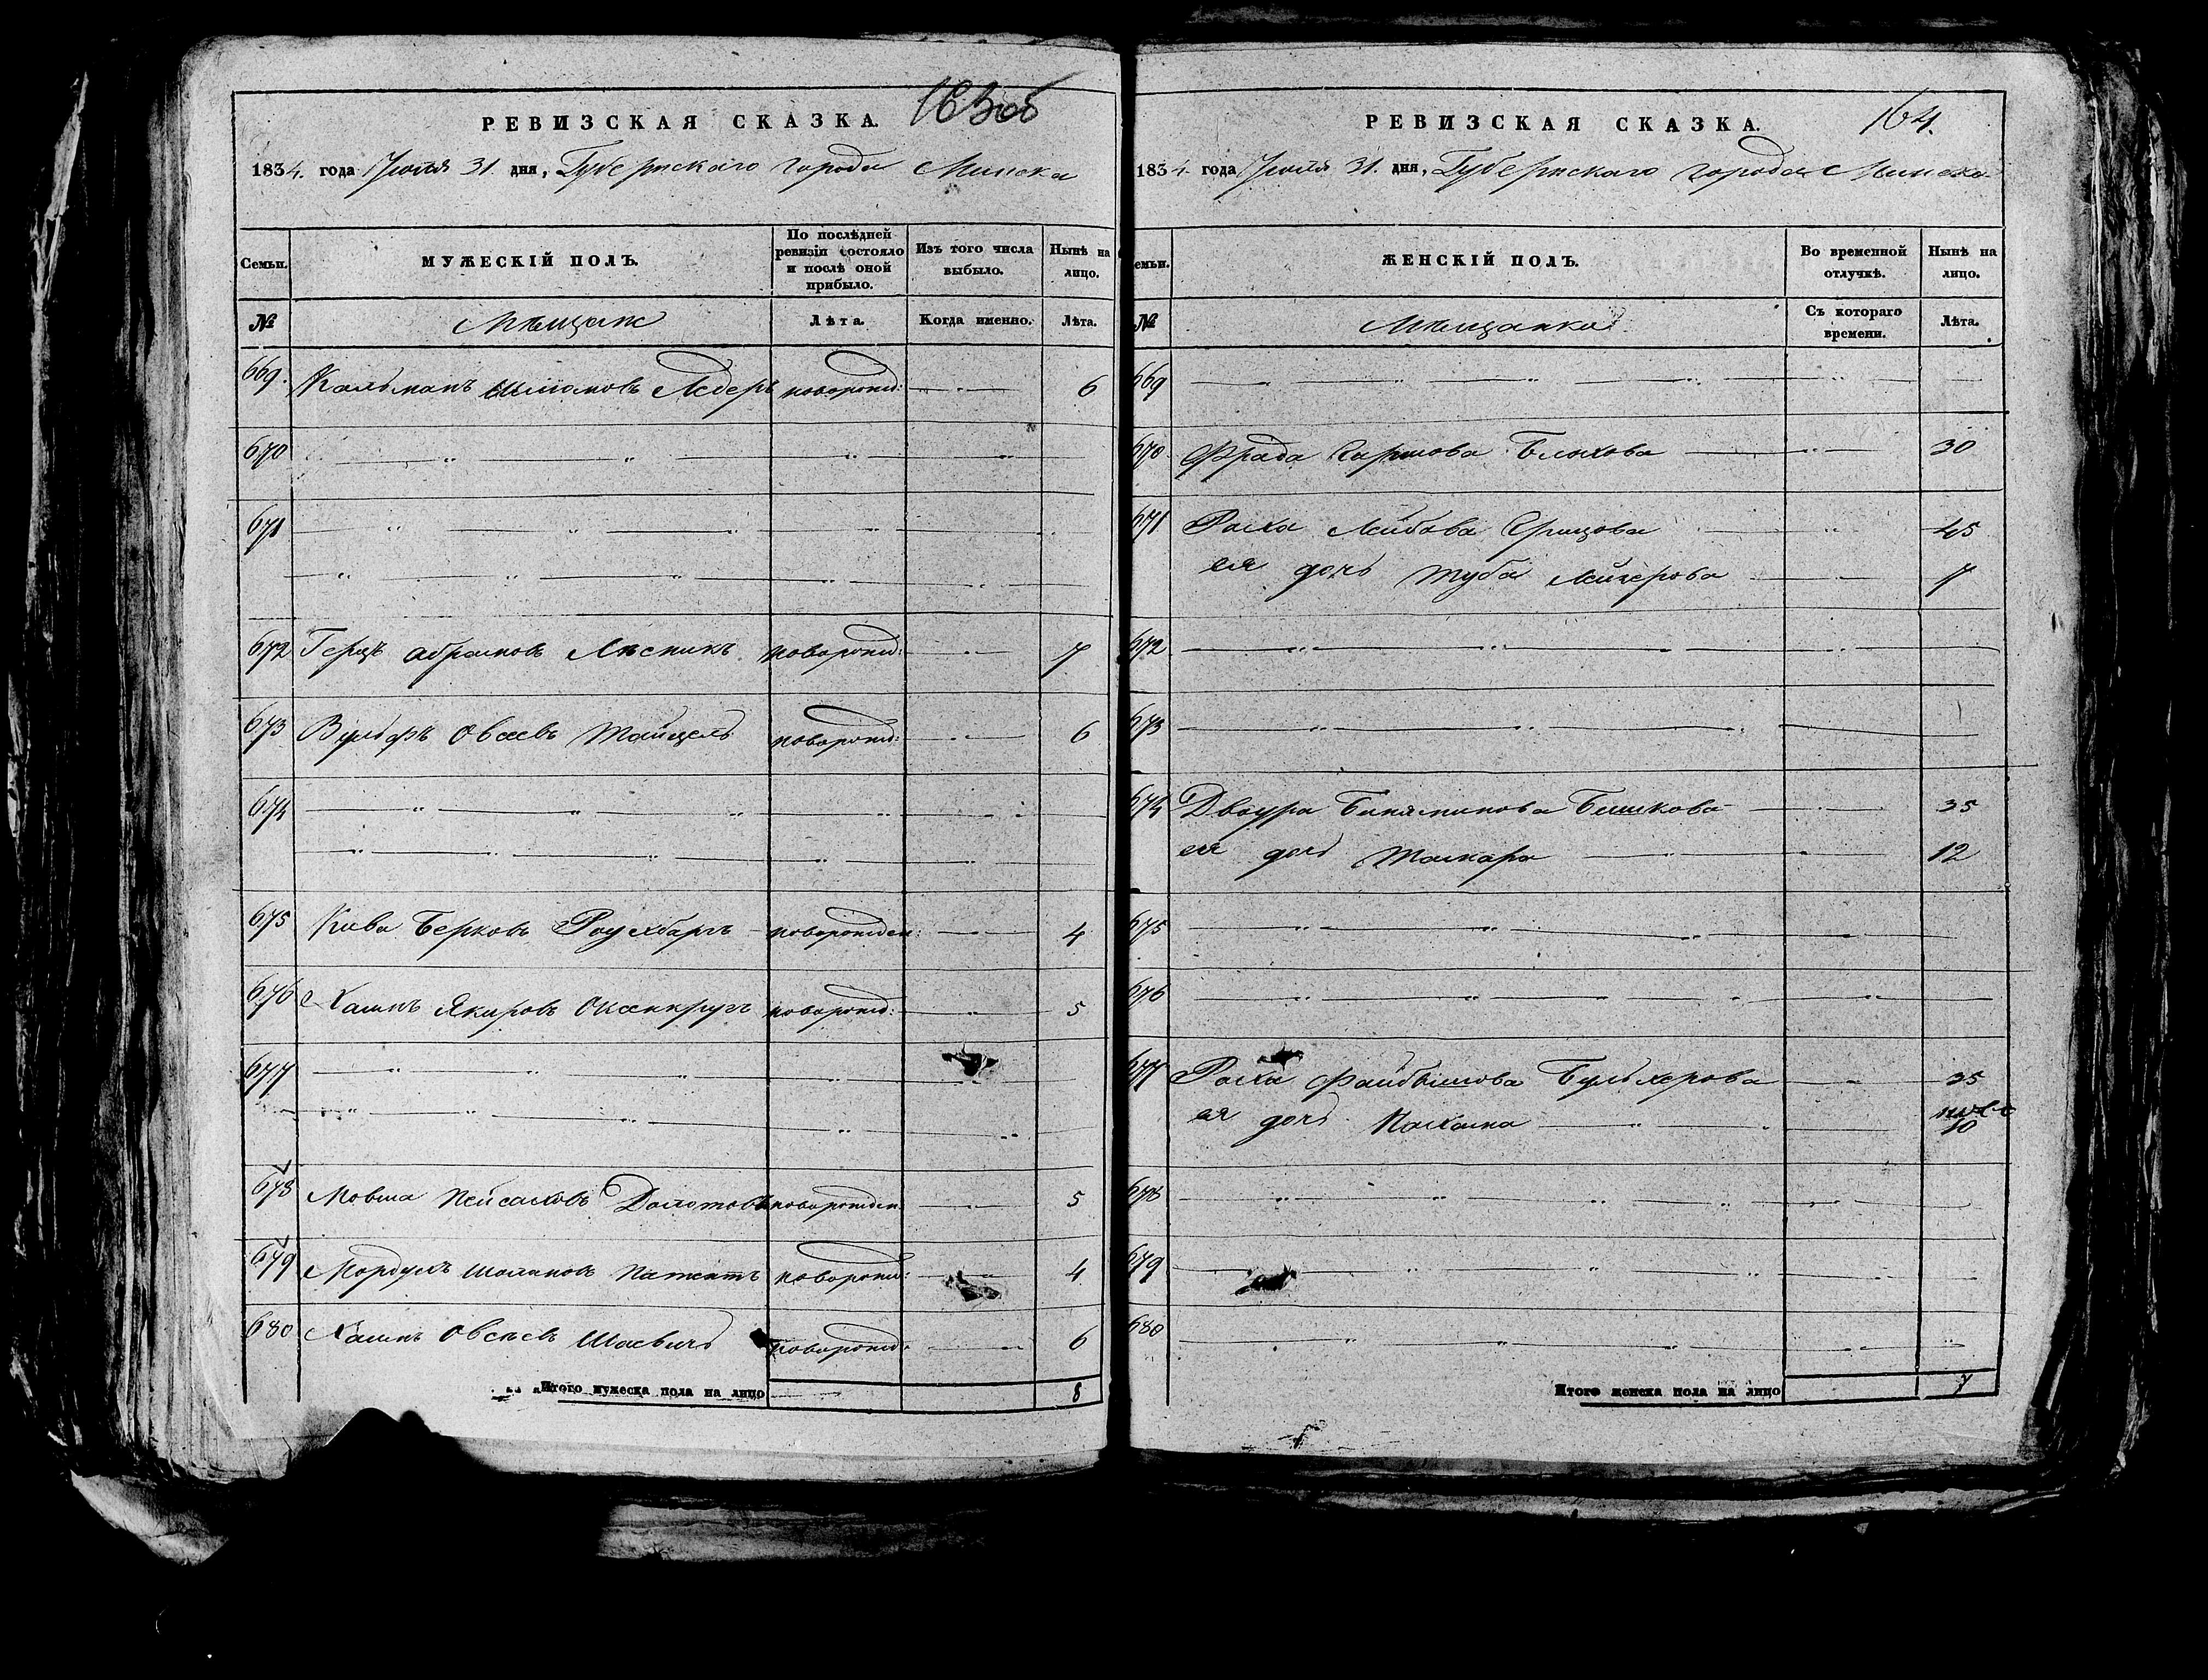 163об
РЕВИЗСКАЯ СКАЗКА.
1834. года Іюля 31. дня, Губернскаго города Минска
Семьи.
МУЖЕСКІЙ ПОЛЪ.
По послѣдней ревизіи состояло и послѣ оной прибыло.
Изъ того числа выбыло.
Нынѣ на лицо.
№
Мѣщане
Лѣта.
Когда именно.
Лѣта.
669. Кальманъ Шліомовъ Ледеръ новорожд: 6
670
671
672 Герцъ Абрамовъ Лѣсникъ новорожд: 7
673 Вульфъ Овсеевъ Тайцель новорожд: 6
674
675 Кива Берковъ новорожден: 4
676 Хаимъ Якировъ новорожд: 5
677
678 Мовша Пейсаховъ новорожден 5
679 Мордухъ новорожд: 4
680 Хаимъ Овсѣевъ новорожд. 6
Итого мужеска пола на лицо 8
164.
РЕВИЗСКАЯ СКАЗКА.
1834. года Іюля 31. дня, Губернскаго города Минска
Семьи.
ЖЕНСКІЙ ПОЛЪ.
Во временной отлучкѣ.
Нынѣ на лицо.
№
Мѣщанки
Съ котораго времени.
Лѣта.
669
670 Фрада Гаршова Блюхова 30
671 Расха Лейбова 45
ея дочь Туба Мейерова 7
672
673
674 Двоура Бинаминова 35
ея дочь Тамара 12
675
676
677 Расха Файбишова 35
ея дочь Нахама 10
678
679
680
Итого женска пола на лицо 7